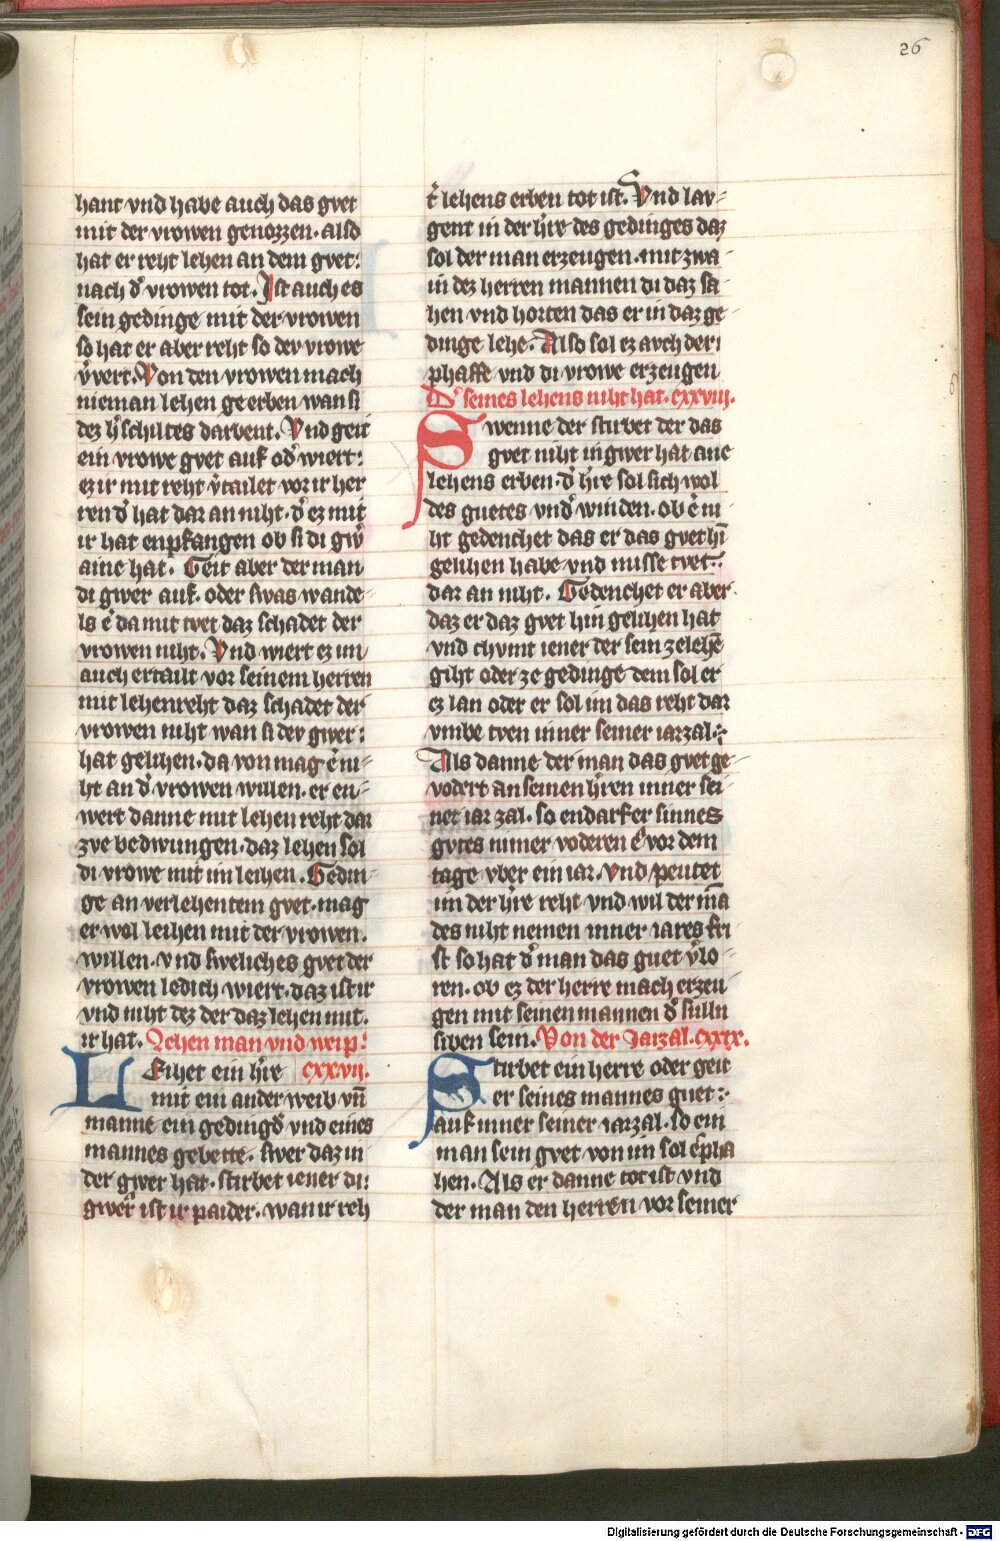 26
hant vnd habe auch das gvet
mit der vrowen genozzen. also
hat er reht lehen an dem gvet:
nach d͛ vrowen tot. Jst auch es
sein gedinge mit der vrowen
so hat er aber reht so dev vrowe
v͛vert. Von den vrowen mach
nieman lehen geerben wan si
dez h͛schiltes darbent. Vnd geit
ein vrowe gvet auf od͛ wiert:
ez ir mit reht v͛tailet vor ir her
ren d͛ hat dar an niht. d͛ ez mit
ir hat enpfangen ob si di gw͛
aine hat. Geit aber der man
di gwer auf. oder swas wande-
ls e͛ da mit tvet daz schadet der
vrowen niht. Vnd wiert ez im
auch ertailt vor seinem herren
mit lehenreht daz schadet der
vrowen niht wan si dev gwer:
hat gelihen. da von mag e͛ ni-
ht an d͛ vrowen willen. er en-
wert danne mit lehen reht dar
zve bedwungen. daz lehen sol
di vrowe mit im leihen. Gedin-
ge an verlehentem gvet. mag
er wol leihen mit der vrowen.
willen. vnd sweliches gvet der
vrowen ledich wiert. daz ist ir
vnd niht dez der daz lehen mit.
ir hat. Lehen man vnd weip:
LEihet ein h͛re cxxvii.
mit ein ander weib vn̄
manne ein geding͛ vnd eines
mannes gebette. swer daz in
der gwer hat. stirbet iener di:
gwer͛ ist ir paider. wan ir reh
t͛ lehens erben tot ist. Vnd lav-
gent in der h͛re des gedinges daz
sol der man erzeugen. mit zwa-
in dez herren mannen di daz sa-
hen vnd horten das er in daz ge-
dinge lehe. Also sol ez avch der:
phaffe vnd di vrowe erzeugen
D͛ seines lehens niht hat. cxxviii.
Swenne der stirbet der das
gvet niht in gwer hat ane
lehens erben. d͛ h͛re sol sich wol
des guetes vnd͛ winden. ob e͛ ni-
ht gedenchet das er das gvet hī
gelihen habe vnd misse tvet:
dar an niht. Gedenchet er aber.
daz er daz gvet hin gelihen hat
vnd chvmt iener der sein ze lehē
giht oder ze gedinge dem sol er
ez lan oder er sol im das reht dar
vmbe tven inner seiner iarzal.
Als danne der man das gvet ge-
vodert an seinen h͛ren inner sei-
ner iar zal. so endarf er sinnes
gvtes nimer voderen e͛ vor dem
tage vber ein iar. vnd peutet
im der h͛re reht vnd wil der mā
des niht nemen inner iares fri
st so hat d͛ man das guet v͛lo-
ren. ob ez der herre mach erzeu
gen mit seinen mannen d͛ sulln
siben sein. Von der Jarzal. cxxix.
Stirbet ein herre oder geit
er seines mannes guet:
auf inner seiner iarzal. so ein
man sein gvet von im sol e͛pha
hen. Als er danne tot ist vnd
der man den herren vor seiner
Digitalisierung gefördert durch die Deutsche Forschungsgemeinschaft - DFG